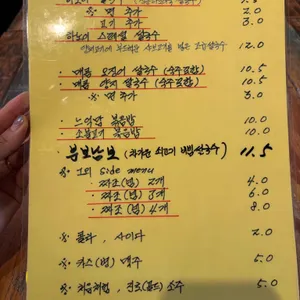 ※ 면 추가 2.0
고기 추가 3.0
하노이 스페셜 쌀국수
12.0
· 매콤 오징어 쌀국수 (숙주포함) 10.5
· 매콤 양지 쌀국수 (숙주포함) 10.5
※ 면 추가 3.0
· 느억맘 볶음밥 10.0
· 소불고기 볶음밥 10.0
· 분보남보 (차가운 쇠고기 비빔쌀국수) 11.5
※ 그외 Side menu
· 짜조(빔) 2개 4.0
· 짜조(빔) 3개 6.0
· 짜조(빔) 4개 8.0
※ 콜라, 사이다 2.0
※ 카스(병) 맥주 5.0
※ 처음처럼, 진로(골드) 소주 5.0